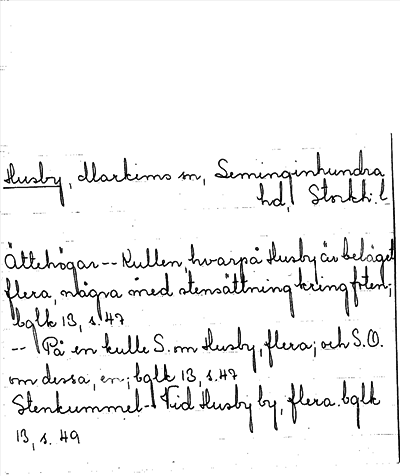 Husby, Markims sn, Seminginhundra
hd, Stockh. l
Ättehögar -- Kullen, hvarpå Husby är beläget
flera, några med stensättning kring foten;
bglk 13, s. 47
-- På en kulle S. om Husby, flera; och S.O.
om dessa, en; bglk 13, s. 47
Stenkummel -- Vid Husby by, flera. bglk
13, s. 49